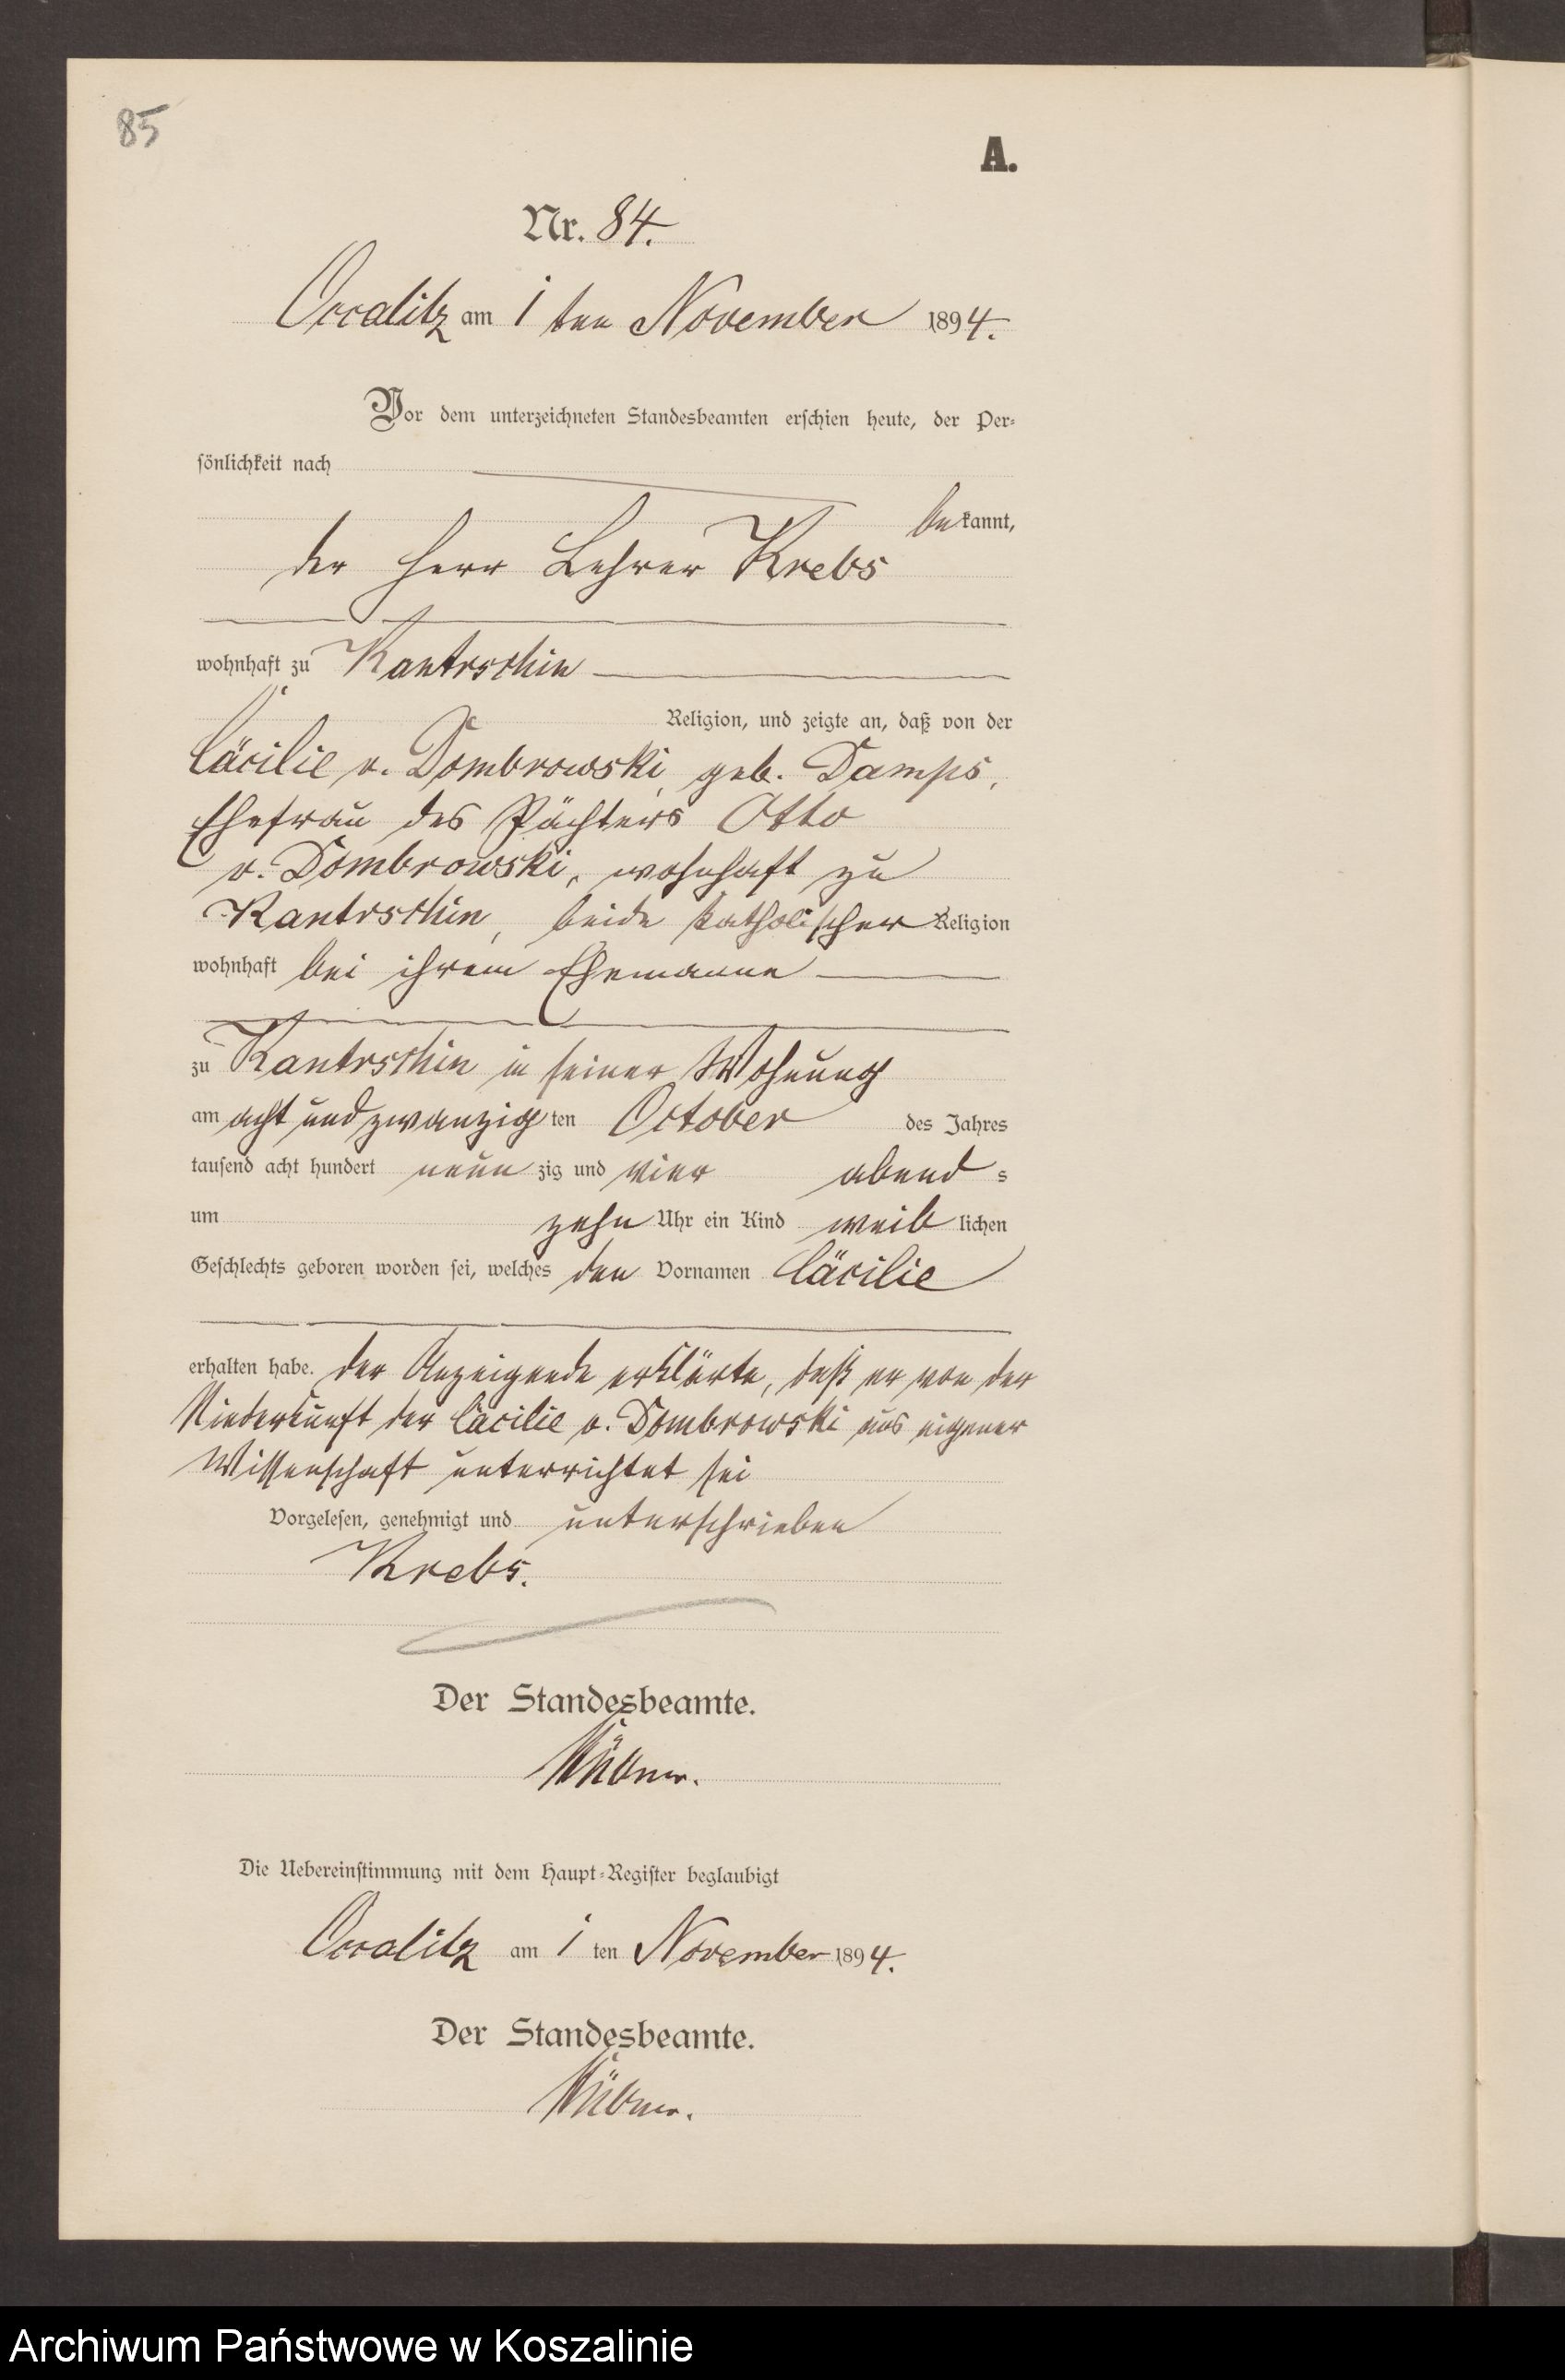 85
A.
Nr. 84.
Occalitz am 1 ten November 1894.
Vor dem unterzeichneten Standesbeamten erschien heute, der Per-
sönlichkeit nach
bekannt,
der Herr Lehrer Krebs
wohnhaft zu Kantrschin
Religion, und zeigte an, daß von der
Cäcilie v. Dombrowski, geb. Damps,
Ehefrau des Pächters Otto
v. Dombrowski, wohnhaft zu
Kantrschin, beide katholischer Religion
wohnhaft bei ihrem Ehemanne
zu Kantrschin in seiner Wohnung
am acht und zwanzig ten October des Jahres
tausend acht hundert neun zig und vier abend s
um zehn Uhr ein Kind weib lichen
Geschlechts geboren worden sei, welches den Vornamen Cäcilie
erhalten habe. der Anzeigende erklärte, daß er von der
Niederkunft der Cäcilie v. Dombrowski aus eigener
Wissenschaft unterrichtet sei
Vorgelesen, genehmigt und unterschrieben
Krebs.
Der Standesbeamte.
Die Uebereinstimmung mit dem Haupt-Register beglaubigt
Occalitz am 1 ten November 1894.
Der Standesbeamte.
Archiwum Państwowe w Koszalinie